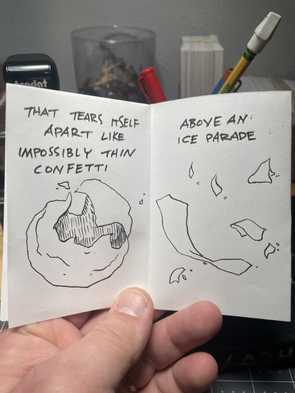 THAT TEARS ITSELF
APART LIKE
IMPOSSIBLY THIN
CONFETTI
ABOVE AN
ICE PARADE